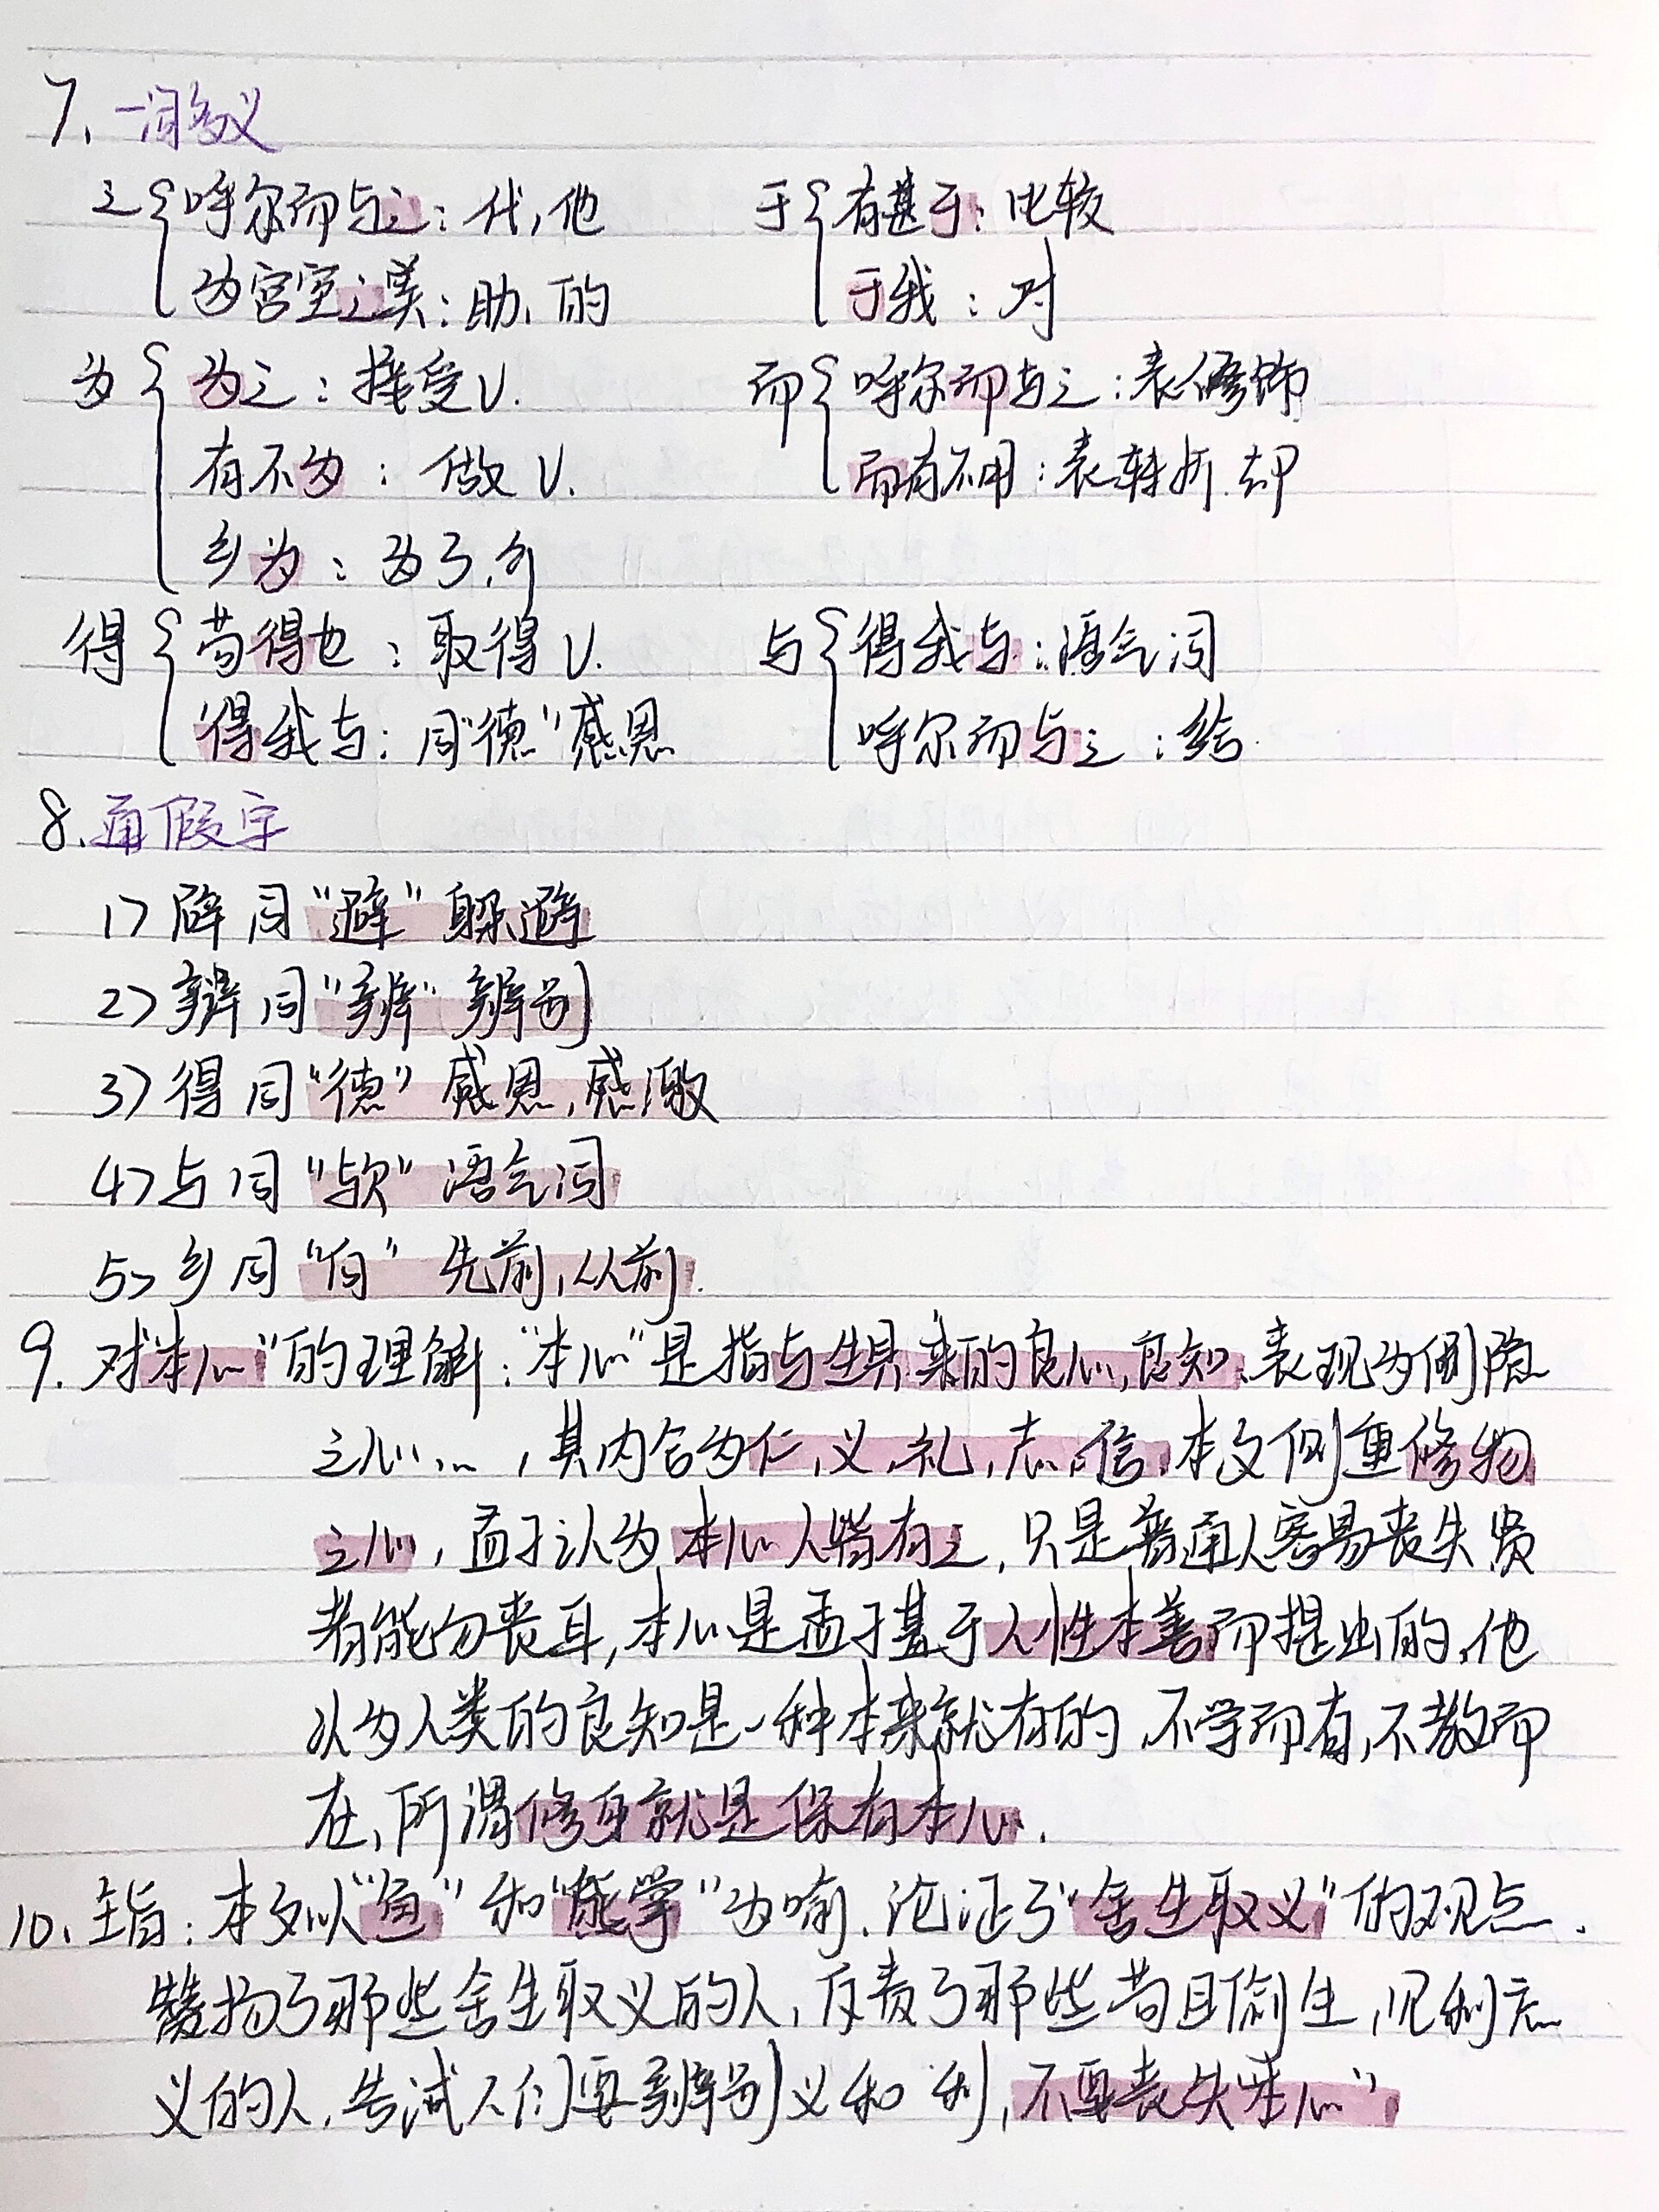 7、一词多义
之 呼尔而与之：代，他
为宫室之美：助、的
于 有甚于：比较
于我：对
为 为之：接受V.
有不为：做V.
乡为：为了，介
而 呼尔而与之：表修饰
而有不用：表转折.却
得 苟得也：取得V.
得我与：同“德”感恩
与 得我与：语气词
呼尔而与之：给.
8、通假字
1> 辟同“避”躲避
2> 辩同“辨”辨别
3> 得同“德”感恩,感激
4> 与同“欤”语气词
5> 乡同“向”先前,从前.
9. 对“本心”的理解：“本心”是指与生具来的良心,良知.表现为恻隐
之心…,其内含为仁,义,礼,志,信.本文侧重修物
之心,孟子认为本心人皆有之,只是普通人容易丧失贤
者能勿丧耳,本心是孟子基于人性本善而提出的,他
认为人类的良知是一种本来就有的,不学而有,不教而
在,所谓修身就是保有本心.
10、主旨：本文以“鱼”和“熊掌”为喻.论证了“舍生取义”的观点.
赞扬了那些舍生取义的人,斥责了那些苟且偷生,见利忘
义的人.告诫人们要辨别义和利,不要丧失“本心”